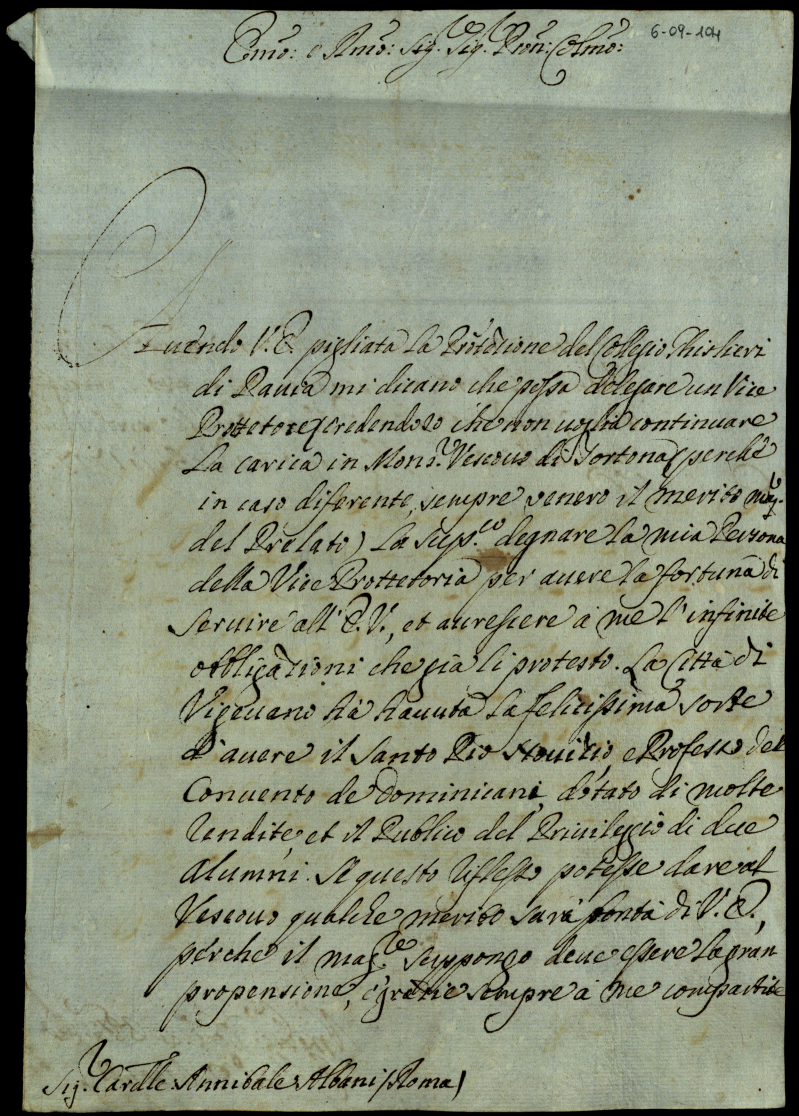 Emo: e Rmo: Sig.r Sig.r Pron: Colmo:
6-09-104
Auendo V. E. pigliata la Protezione del Collegio Ghislieri
di Pauia mi dicano che possa delegare un Vice
Prottetore (credendolo che non uoglia continuare
la carica in Mons.r Vescouo di Tortona (perche
in caso diferente, sempre venero il merito mag.r
del Prelato) La sup.co degnare la mia Persona
della Vice Prottetoria per auere la fortuna di
seruire all' E. V., et acrescere à me l'infinite
obbligazioni che già li protesto. La Città di
Vigeuano hà hauuta la felicissima sorte
d'auere il Santo Pio Nouitio, e Professo del
Conuento de Dominicani, dotato di molte
rendite, et il Publico del Priuileggio di due
Alumni. Se questo riflesso potesse dare al
Vescouo qualche merito sarà bontà di V. E.,
perche il mag.re suppongo deue essere la gran
propensione, e gratie sempre à me compartite
Sig.r Cardle: Annibale Albani (Roma)